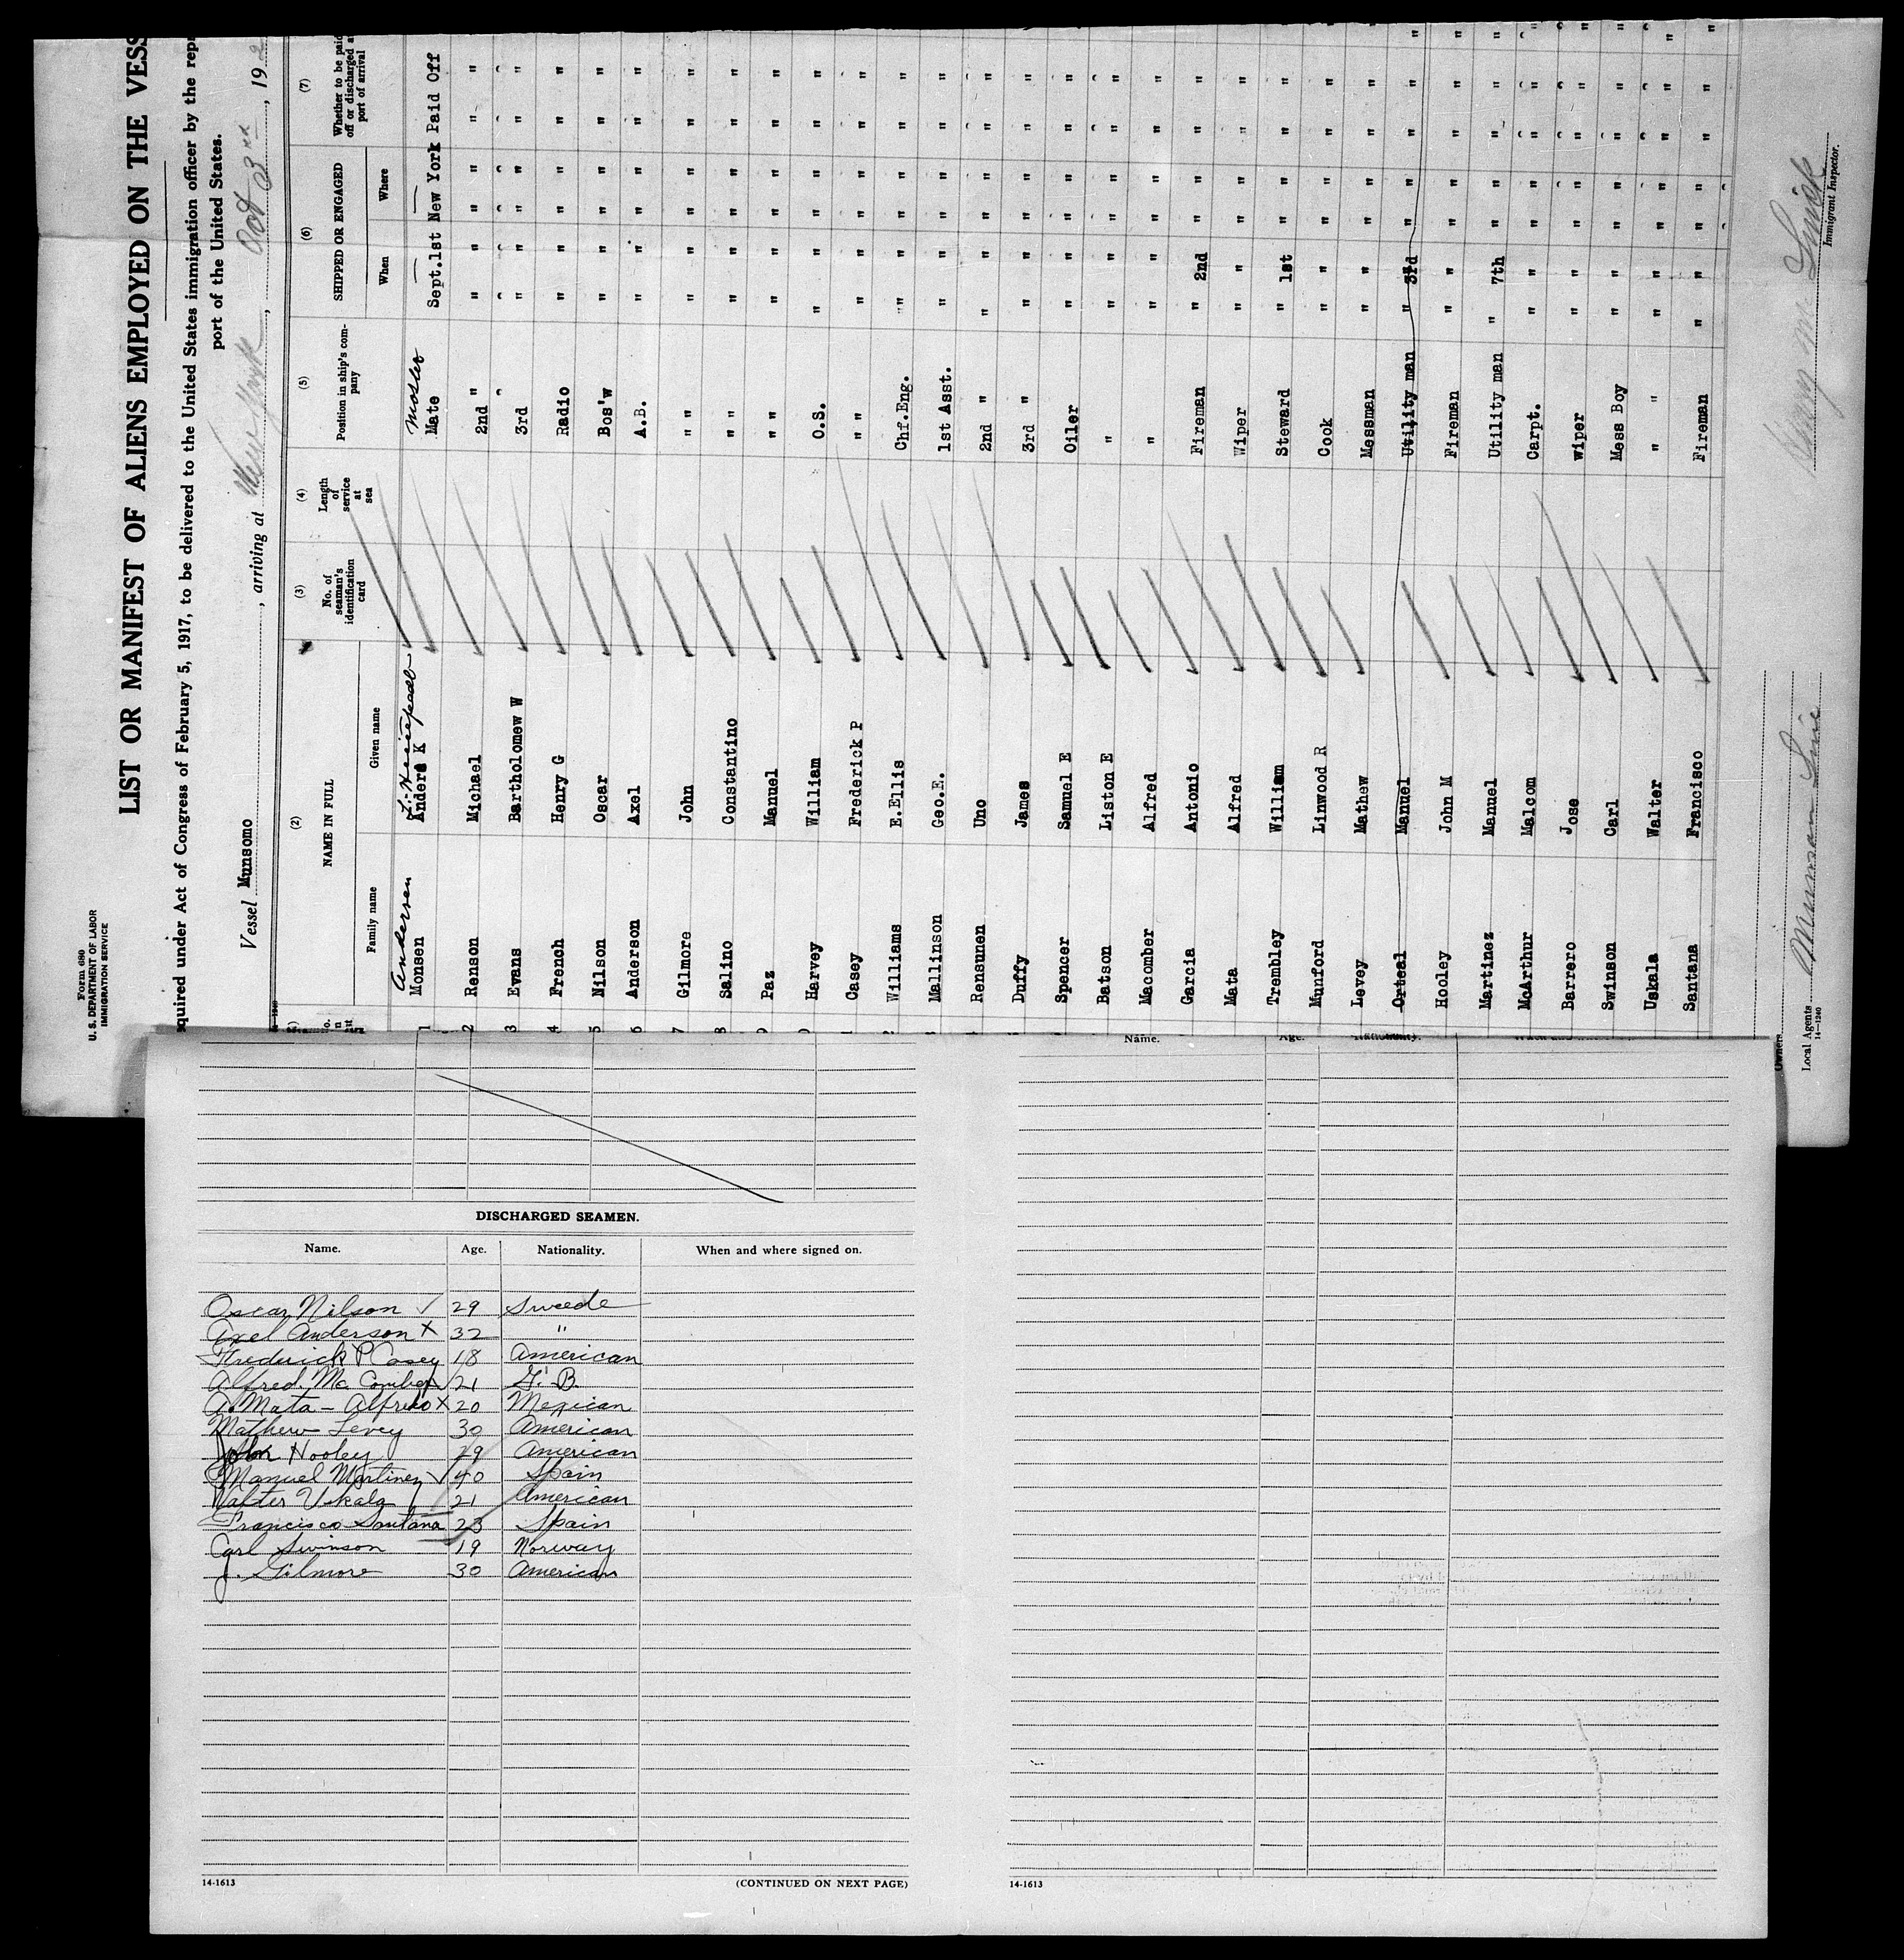 Form 680
U. S. DEPARTMENT OF LABOR
IMMIGRATION SERVICE
LIST OR MANIFEST OF ALIENS EMPLOYED ON THE VESS
quired under Act of Congress of February 5, 1917, to be delivered to the United States immigration officer by the repr
port of the United States.
Vessel Munsomo, arriving at New York, Oct 3rd, 192
(2) (3) (4) (5) (6) (7)
NAME IN FULL No. of seaman's identification card Length of service at sea Position in ship's company SHIPPED OR ENGAGED Whether to be paid off or discharged at port of arrival
Family name Given name When Where
Andersen Master
1 Monsen Anders K Mate Sept.1st New York Paid Off
2 Renson Michael 2nd " " " " " " "
3 Evans Bartholomew W 3rd " " " " " "
4 French Henry G Radio " " " " " "
5 Nilson Oscar Bos'w " " " " " "
6 Anderson Axel A.B. " " " " " "
7 Gilmore John " " " " " " " "
8 Salino Constantino " " " " " " " "
9 Paz Manuel " " " " " " " "
0 Harvey William O.S. " " " " " "
1 Casey Frederick P " " " " " " " "
2 Williams E.Ellis Chf.Eng. " " " " " "
3 Mallinson Geo.E. 1st Asst. " " " " " "
4 Rensunen Uno 2nd " " " " " " "
Duffy James 3rd " " " " " " "
Spencer Samuel E Oiler " " " " " "
Batson Liston E " " " " " " "
Macomber Alfred " " " " " " "
Garcia Antonio Fireman " 2nd " " " "
Mata Alfred Wiper " " " " " "
Trembley William Steward " 1st " " " "
Munford Linwood R Cook " " " " " "
Levey Mathew Messman " " " " " "
Orteal Manuel Utility man " 3rd " " " "
Hooley John M Fireman " " " " " "
Martinez Manuel Utility man " 7th " " " "
McArthur Malcom Carpt. " " " " " "
Barrero Jose wiper " " " " " "
Swinson Carl Mess Boy " " " " " "
Uskala Walter " " " " " " "
Santana Francisco Fireman " " " " " "
Owners
Local Agents Munson Line
14—1240
Immigrant Inspector.
DISCHARGED SEAMEN.
Name. Age. Nationality. When and where signed on.
Oscar Nilson ✓ 29 Sweede
Axel Anderson x 32 "
Frederick P Casey 18 American
Alfred. Mc Comber 21 G. B.
A. Mata - Alfredo x 20 Mexican
Mathew Levey 30 American
John Hooley 29 American
Manuel Martinez ✓ 40 Spain
Walter Uskala 21 American
Francisco Santana 23 Spain
Carl Swinson 19 Norway
J. Gilmore 30 American
14-1613
(CONTINUED ON NEXT PAGE)
Name. Age. Nationality.
14-1613